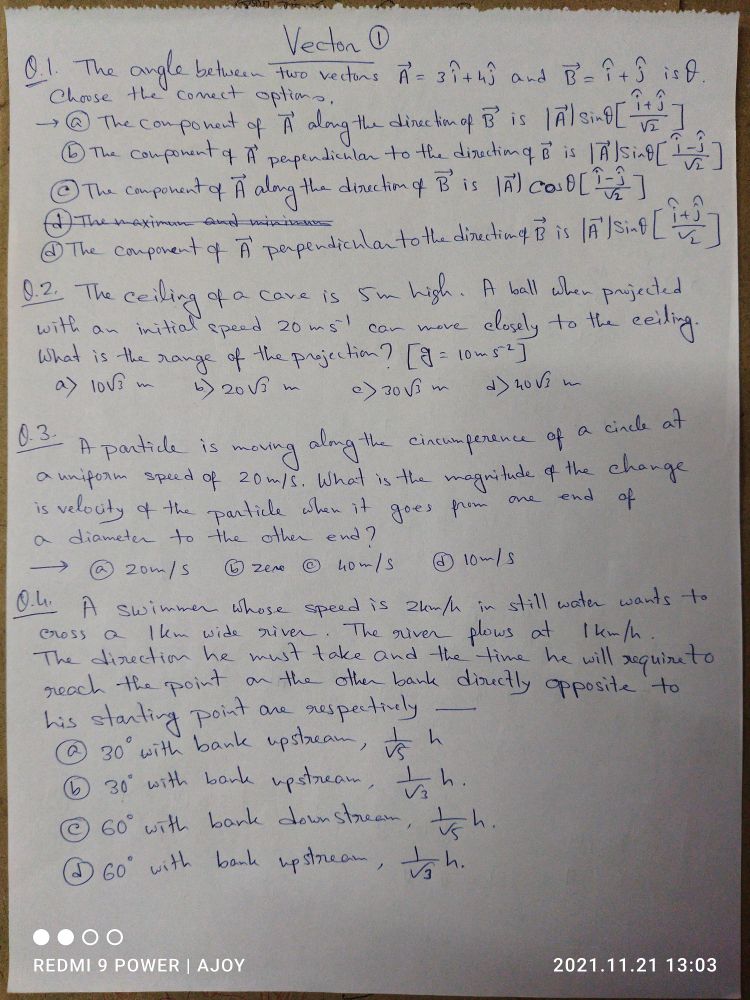 Vector ①
Q.1. The angle between two vectors A⃗ = 3î+4ĵ and B⃗ = î + ĵ is θ.
Choose the correct options.
→ ⓐ The component of A⃗ along the direction of B⃗ is |A⃗| sinθ[(î+ĵ)/√2]
ⓑ The component of A⃗ perpendicular to the direction of B⃗ is |A⃗|sinθ[(î-ĵ)/√2]
ⓒ The component of A⃗ along the direction of B⃗ is |A⃗| cosθ[(î-ĵ)/√2]
ⓓ The maximum and minimum
ⓓ The component of A⃗ perpendicular to the direction of B⃗ is |A⃗|sinθ[(î+ĵ)/√2]
Q.2. The ceiling of a cave is 5m high. A ball when projected
with an initial speed 20 ms⁻¹ can move closely to the ceiling.
What is the range of the projection? [g = 10ms⁻²]
a> 10√3 m b> 20√3 m c> 30√3 m d> 40√3 m
Q.3. A particle is moving along the circumference of a circle at
a uniform speed of 20m/s. What is the magnitude of the change
is velocity of the particle when it goes from one end of
a diameter to the other end?
→ ⓐ 20m/s ⓑ zero ⓒ 40m/s ⓓ 10m/s
Q.4. A swimmer whose speed is 2km/h in still water wants to
cross a 1km wide river. The river flows at 1km/h.
The direction he must take and the time he will require to
reach the point on the other bank directly opposite to
his starting point are respectively —
ⓐ 30° with bank upstream, 1/√5 h
ⓑ 30° with bank upstream, 1/√3 h.
ⓒ 60° with bank downstream, 1/√5 h.
ⓓ 60° with bank upstream, 1/√3 h.
REDMI 9 POWER | AJOY
2021.11.21 13:03